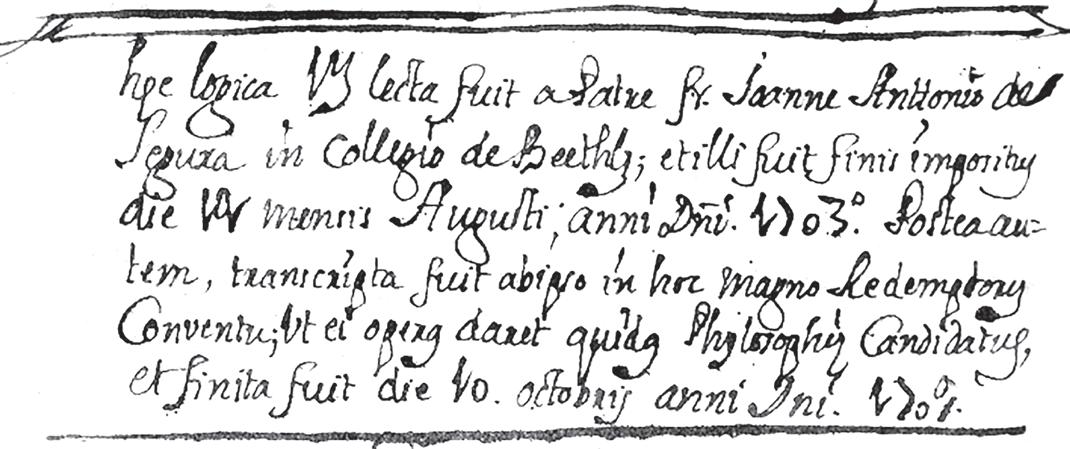 hæc logica lecta fuit a Patre fr. Joanne Anttonio de
Segura in Collegio de Beethlȝ; et illi fuit finis impositus
die mensis Augusti; anni Dñi. 1703º. Postea au=
tem, transcripta fuit ab ipso in hoc magno Redemptoris
Conventu; Vt ei operã daret quidã Phylosophiȩ Candidatus,
et finita fuit die 10. octobris anni Dni.